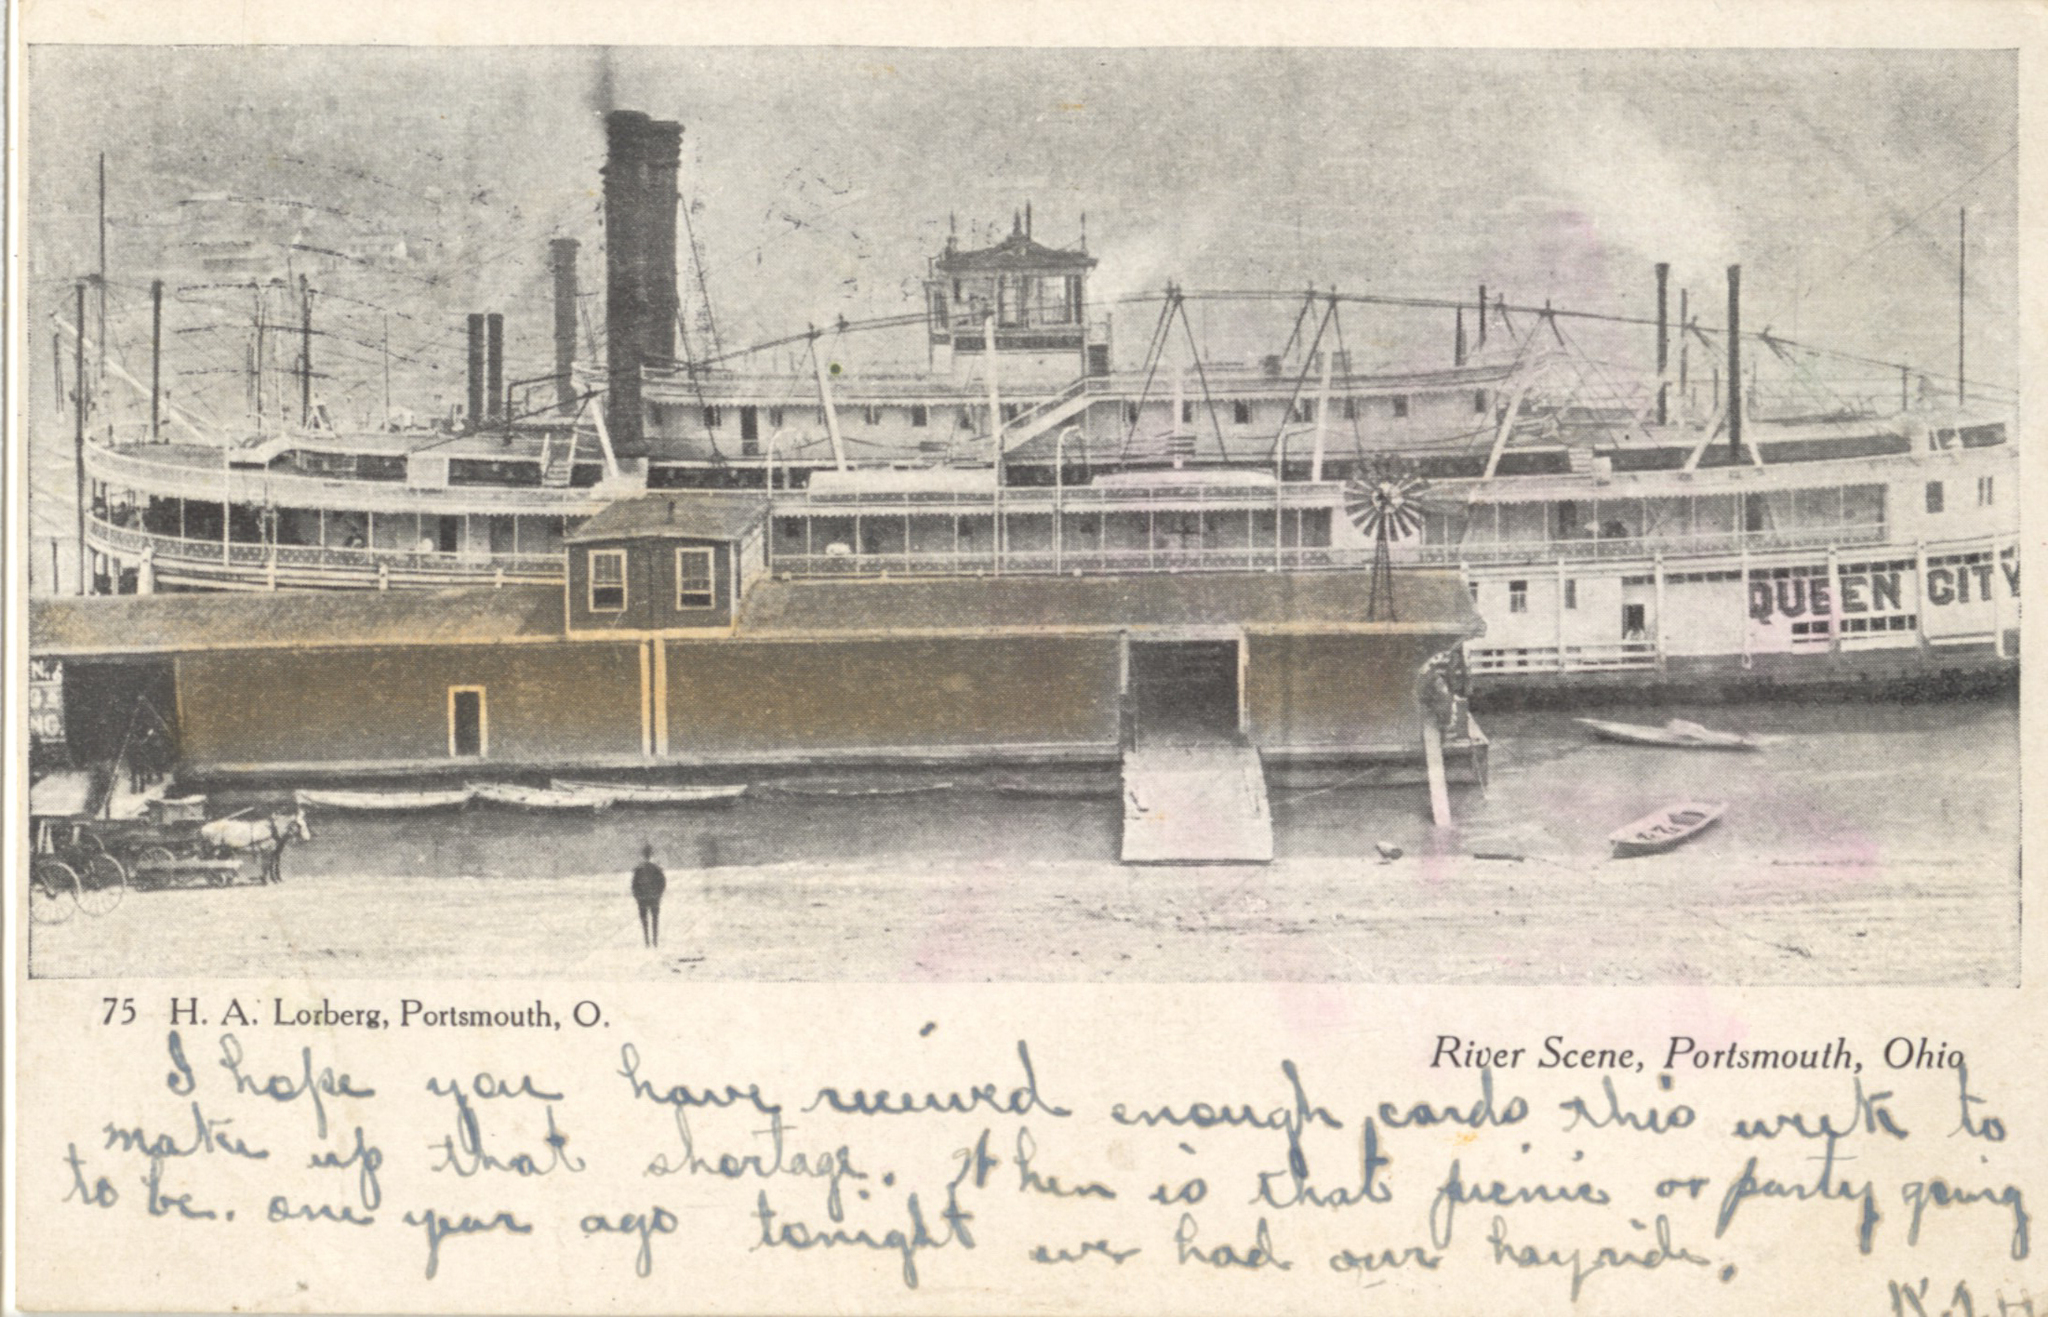 QUEEN CITY
N.
NG.
75 H. A. Lorberg, Portsmouth, O.
River Scene, Portsmouth, Ohio
I hope you have received enough cards this week to
make up that shortage. When is that picnic or party going
to be. One year ago tonight we had our hayride.